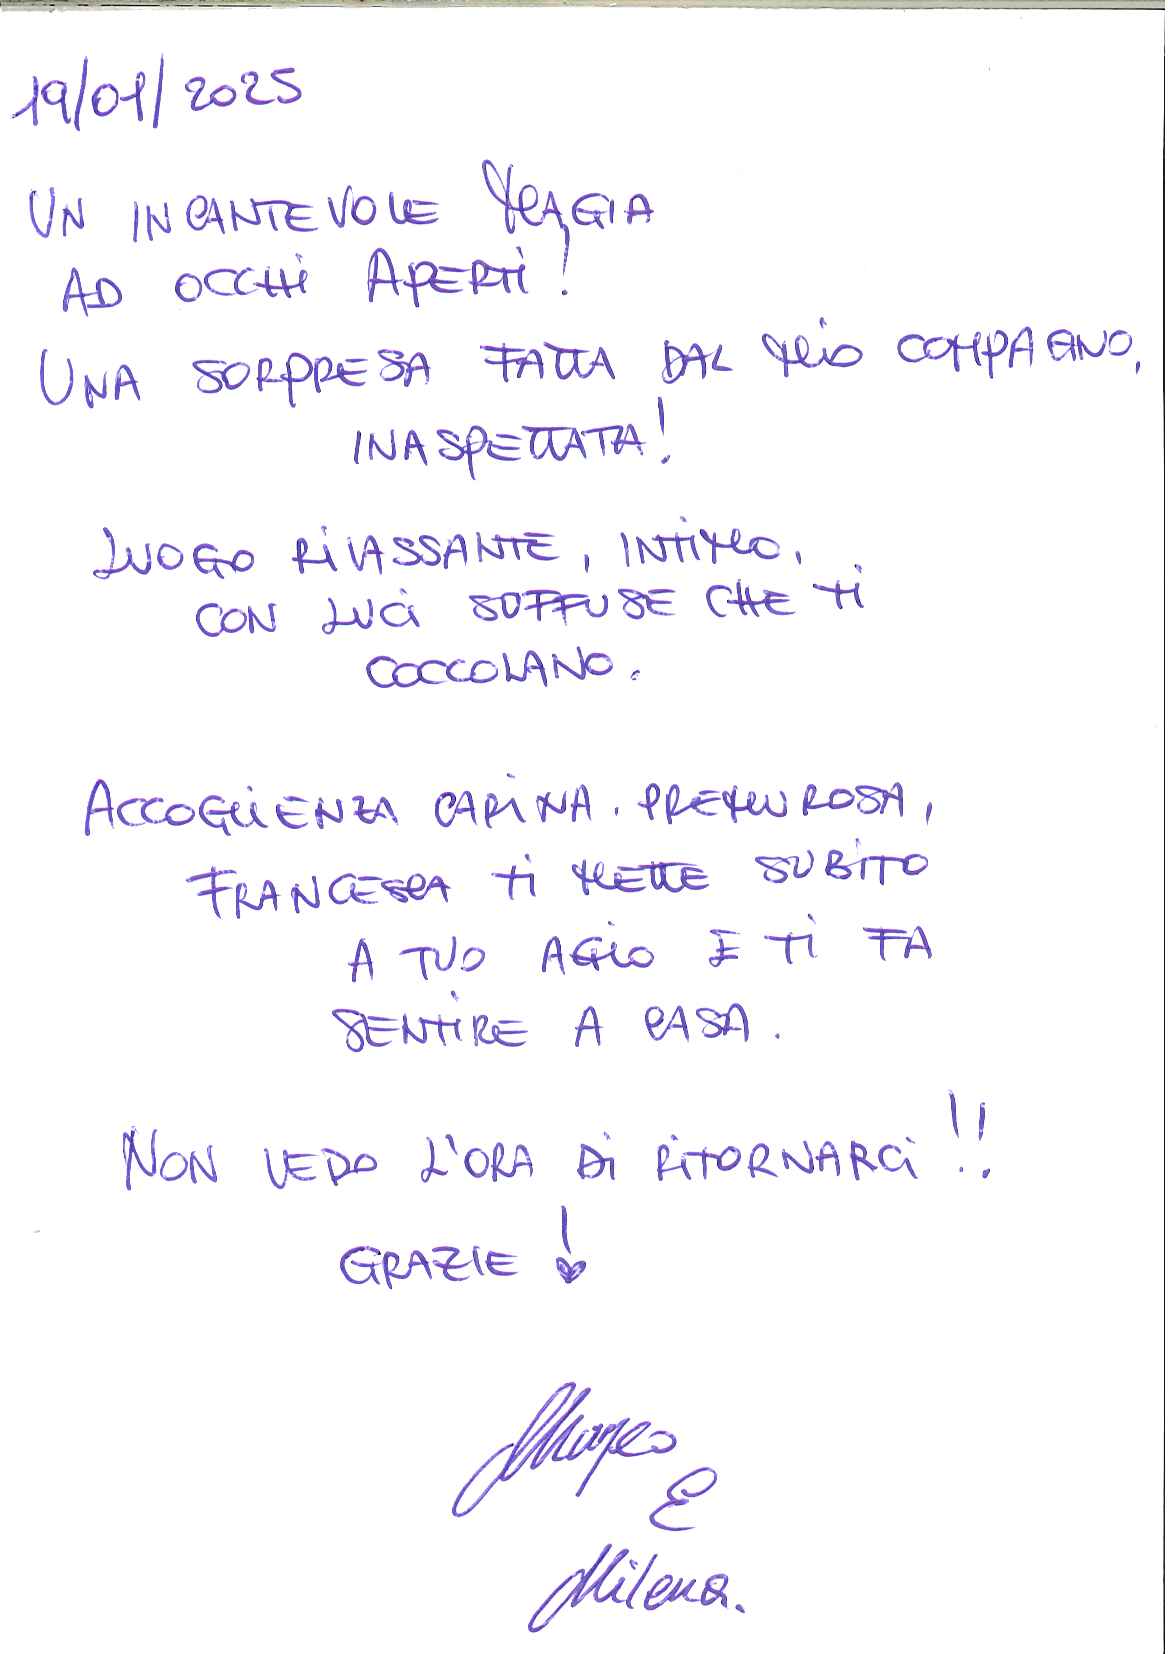 19/01/2025
UN INCANTEVOLE MAGIA
AD OCCHI APERTI!
UNA SORPRESA FATTA DAL MIO COMPAGNO,
INASPETTATA!
LUOGO RILASSANTE, INTIMO,
CON LUCI SOFFUSE CHE TI
COCCOLANO.
ACCOGLIENZA CARINA. PREMUROSA,
FRANCESCA TI METTE SUBITO
A TUO AGIO E TI FA
SENTIRE A CASA.
NON VEDO L'ORA DI RITORNARCI!!
GRAZIE!
E
Milena.